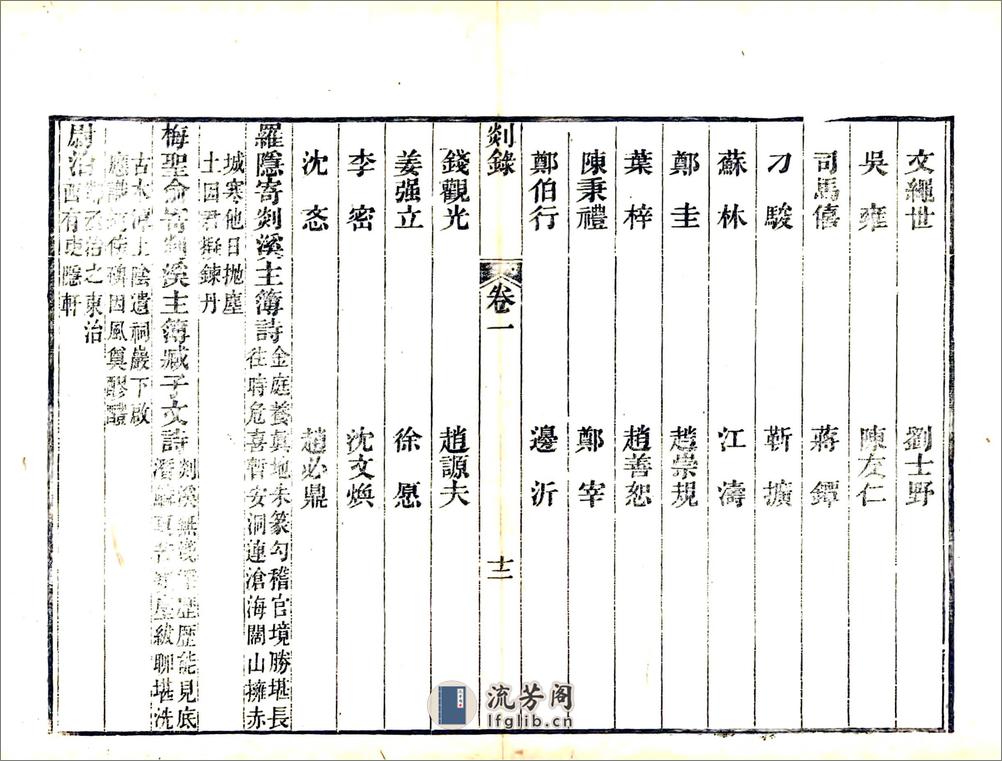 文繩世　劉士野
吳雍　陳友仁
司馬僖　蔣鐔
刁駿　靳擴
蘇林　江濤
鄭圭　趙崇規
葉梓　趙善恕
陳秉禮　鄭宰
鄭伯行　邊沂
剡錄　卷一　十二
錢觀光　趙源夫
姜强立　徐愿
李密　沈文煥
沈忞　趙必鼎
羅隱寄剡溪主簿詩
金庭養真地朱篆勾稽官境勝堪長
往時危喜暫安洞連滄海闊山擁赤
城寒他日抛塵
土因君擬鍊丹
梅聖俞寄剡溪主簿臧子文詩
剡溪無淺深歷歷能見底
潛鱗莫苦塵紱聊堪洗
古木潭上陰遺祠巖下啟
應識文侍碑因風奠醪醴
尉治
縣治之東治
西有吏隱軒
流芳阁
lfglib.cn